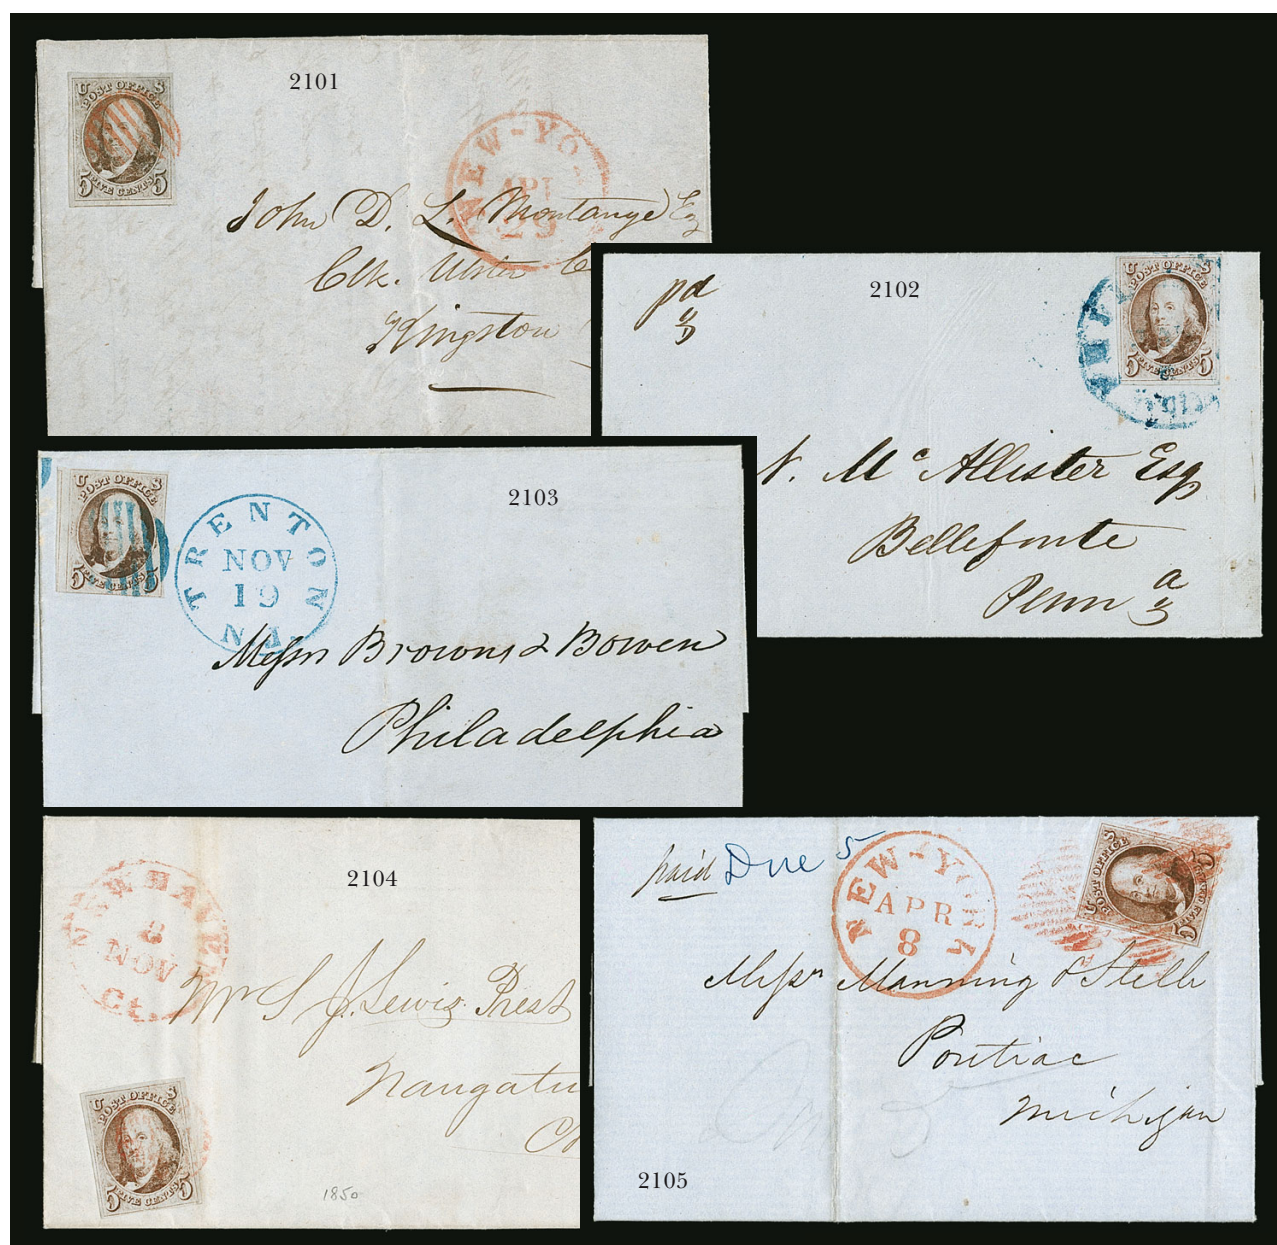 2101
U S
POST OFFICE
FIVE CENTS
5 5
NEW-YO
APR
29
John D. L. Montange Esq
Clk. Ulster C
Kingston
2102
pd
3
U S
POST OFFICE
FIVE CENTS
5 5
N. Mc Allister Esq
Bellefonte
Penn a
2103
U S
POST OFFICE
FIVE CENTS
5 5
TRENTON
NOV
19
N.J.
Messrs Browns & Bowen
Philadelphia
2104
NEW HAVEN
8
NOV
Ct.
Mr S J. Lewis Prest
Naugatu
U S
POST OFFICE
FIVE CENTS
5 5
1850
paid Due 5
NEW-YORK
APR
8
U S
POST OFFICE
FIVE CENTS
5 5
Messrs Manning & Stelle
Pontiac
Michigan
2105